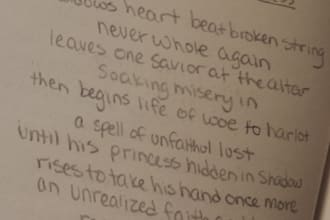 heart beat broken string
never whole again
leaves one savior at the altar
Soaking misery in
then begins life of woe to harlot
a spell of unfaithful lost
until his princess hidden in Shadow
rises to take his hand once more
an unrealized